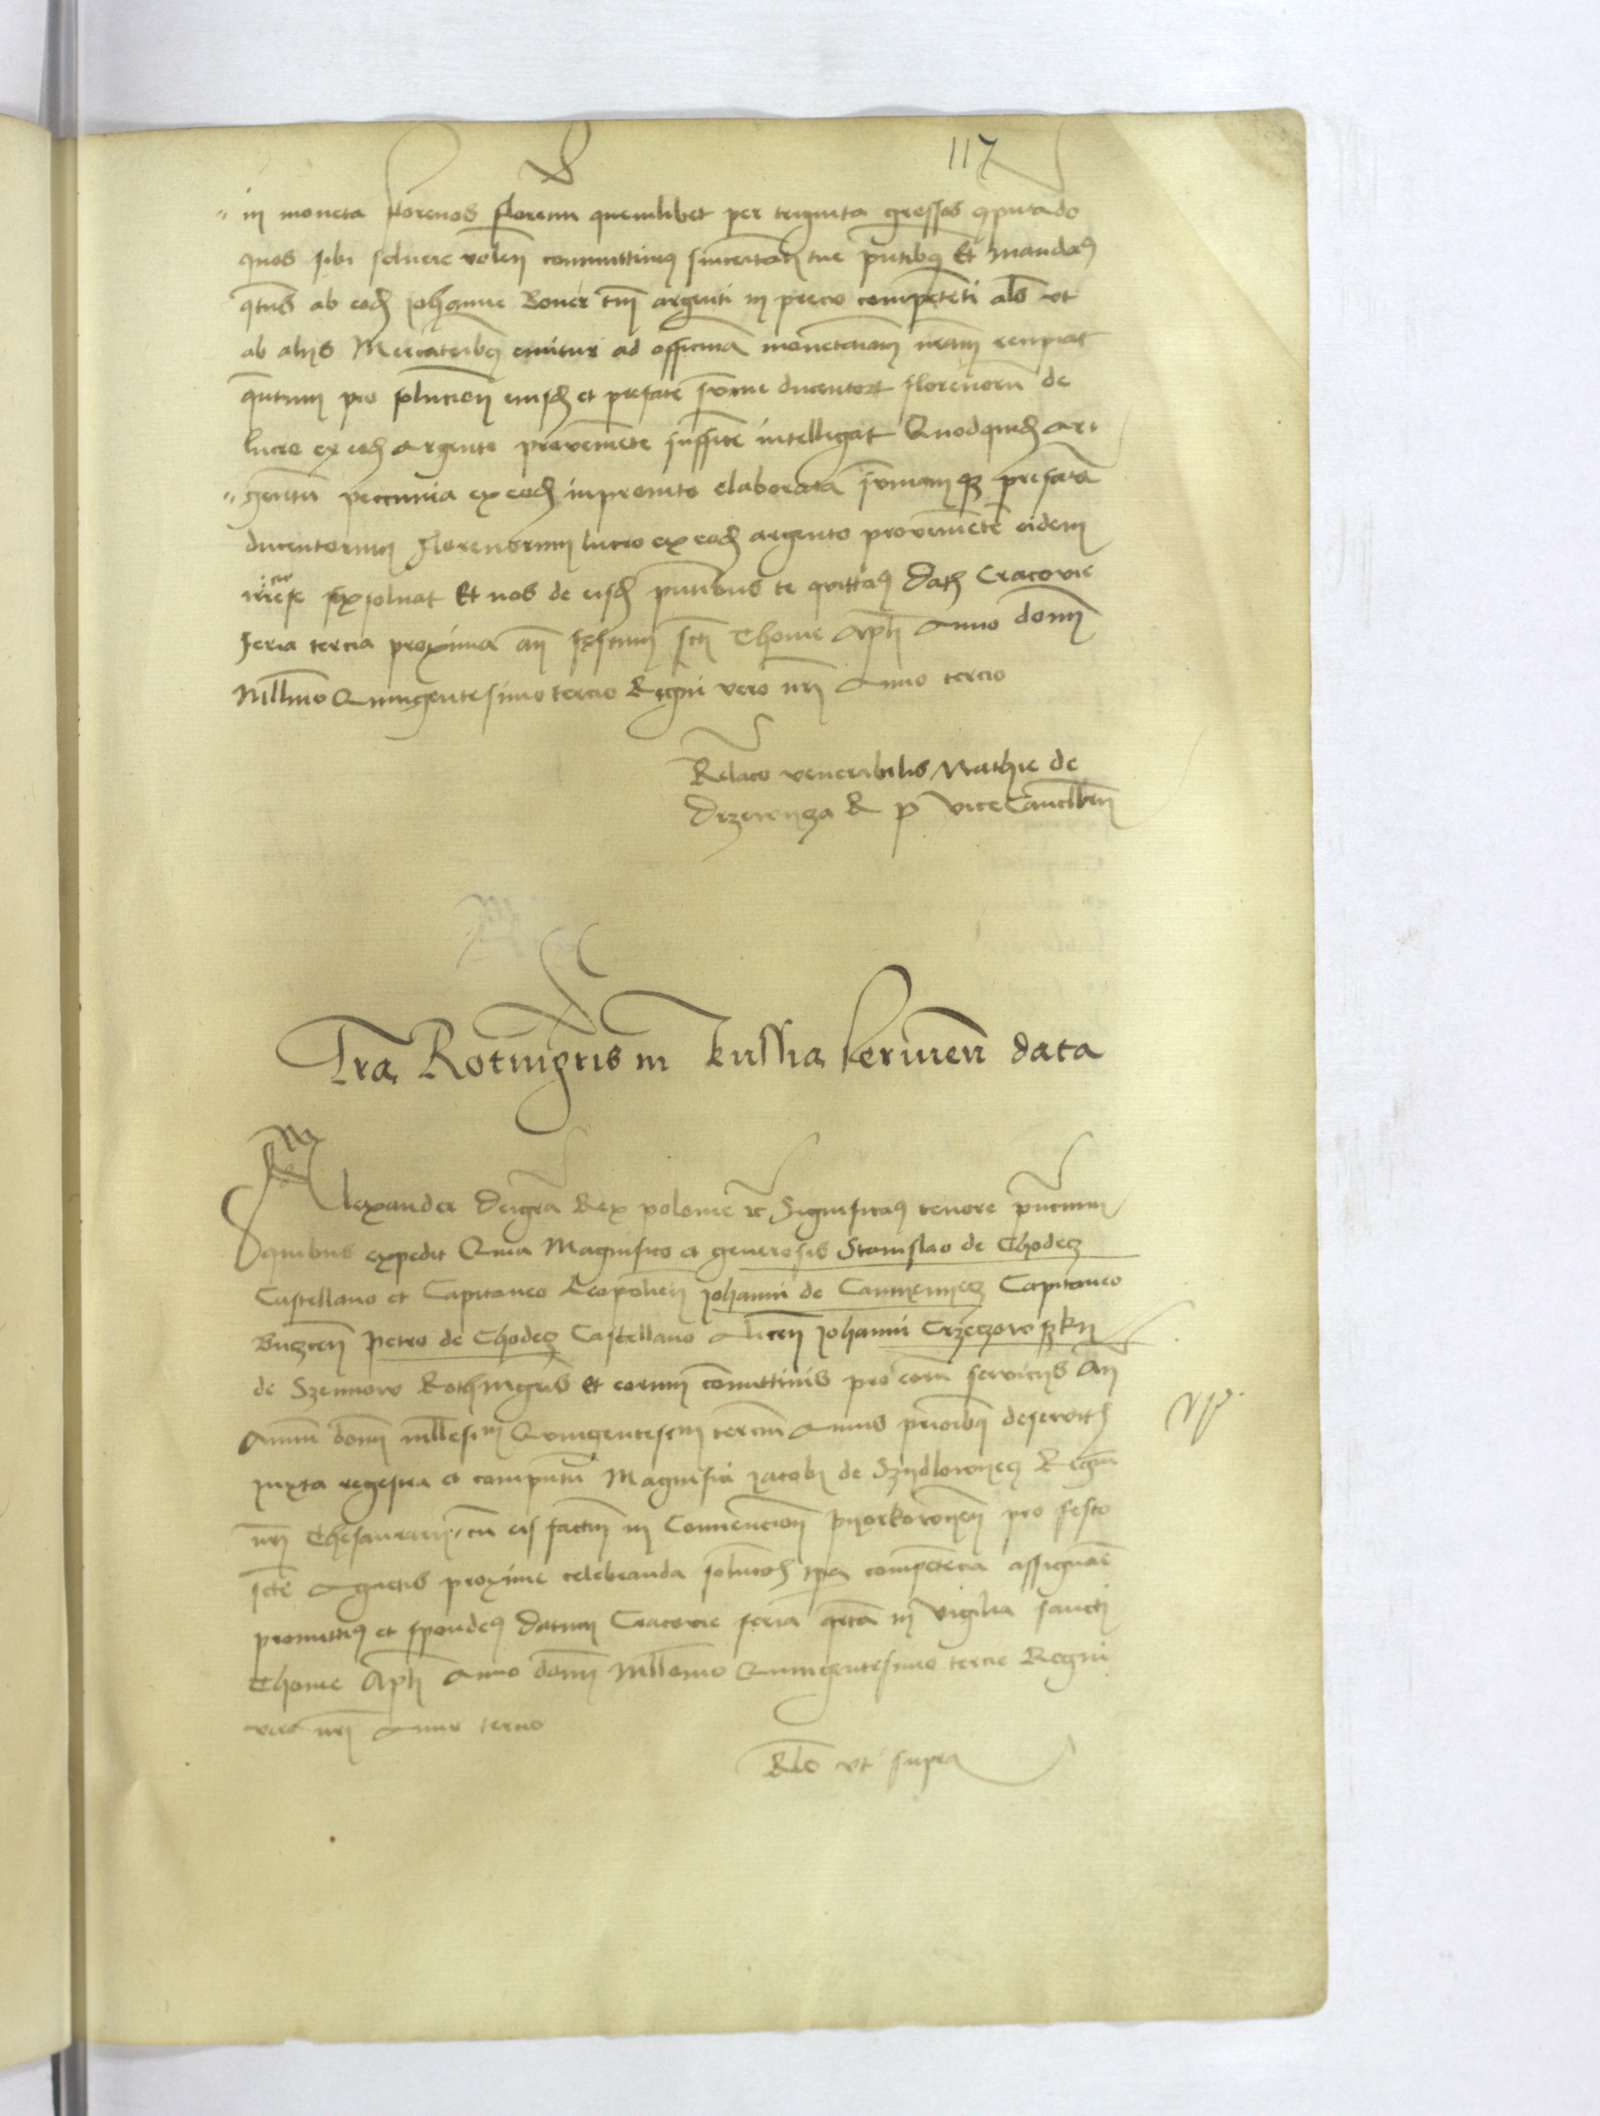 117
in moneta florenos florenu quemlibet per triginta grossos 9putado
quos sibi soluere volen committimus sinceritati tue pntibus Et mandamus
qtus ab eod Johanne Boner tm argenti in precio competeti als vt
ab alijs Mercatoribus emitur ad officina monetariam nram recipiat
quntum pro solucion eiusd et prefate summe ducentor florenoru de
lucro ex eod argento proveniete suffice intelligat Quodquid ar
gentu peccunia ex eod inpromto elaborata summamqz prefata
ducentorum florenorum lucro ex eod argento proveniete eidem
exsoluat Et nos de eisd pntibus te quittamus Dat Cracovie
feria tercia proxima an festum scti Thome Apli Anno domi
Mllmo Quingentesimo tercio Regni vero nri Anno tercio
Relaco venerabilis Mathie de
Drzewycza R P ViceCancellarij
Lra Rotmgris in Russia seruien data
Alexander Deigra Rex polonie rc Significamus tenore pntium
quibus expedit Quia Magnifico et generosis Stanislao de Chodecz
Castellano et Capitaneo Leopolien Johanni de Camyenyecz Capitaneo
Buscen Petro de Chodecz Castellano Johanni Crzeczowszky
de Szennow Rothmgris Et eorum comittiuis pro eoru seruicijs An
Annu domi millesim Quingentesim terciu Annis prioribus deseruit
juxta regestra et computu Magnifici Jacobi de Szydlowyecz Regni
nri Thesaurarij cu eis factum in Convencion Pyotrkovien pro festo
scte Agnetis proxime celebranda competecia assignare
promittimus et spondemus Datum Cracovie feria qrta in vigilia sancti
Thome Apli Anno domi Millmo Quingentesimo tercio Regni
vero nri Anno tercio
Rlo vt supra